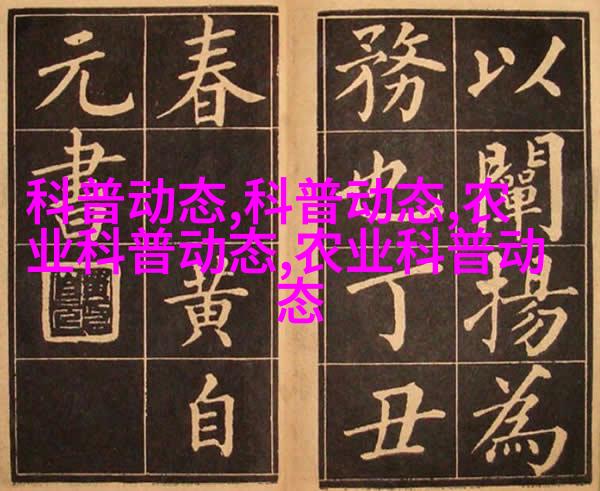 科普动态,科普动态,农
业科普动态,农业科普动
态
以闡揚為
務也丁丑
春黃自
元書